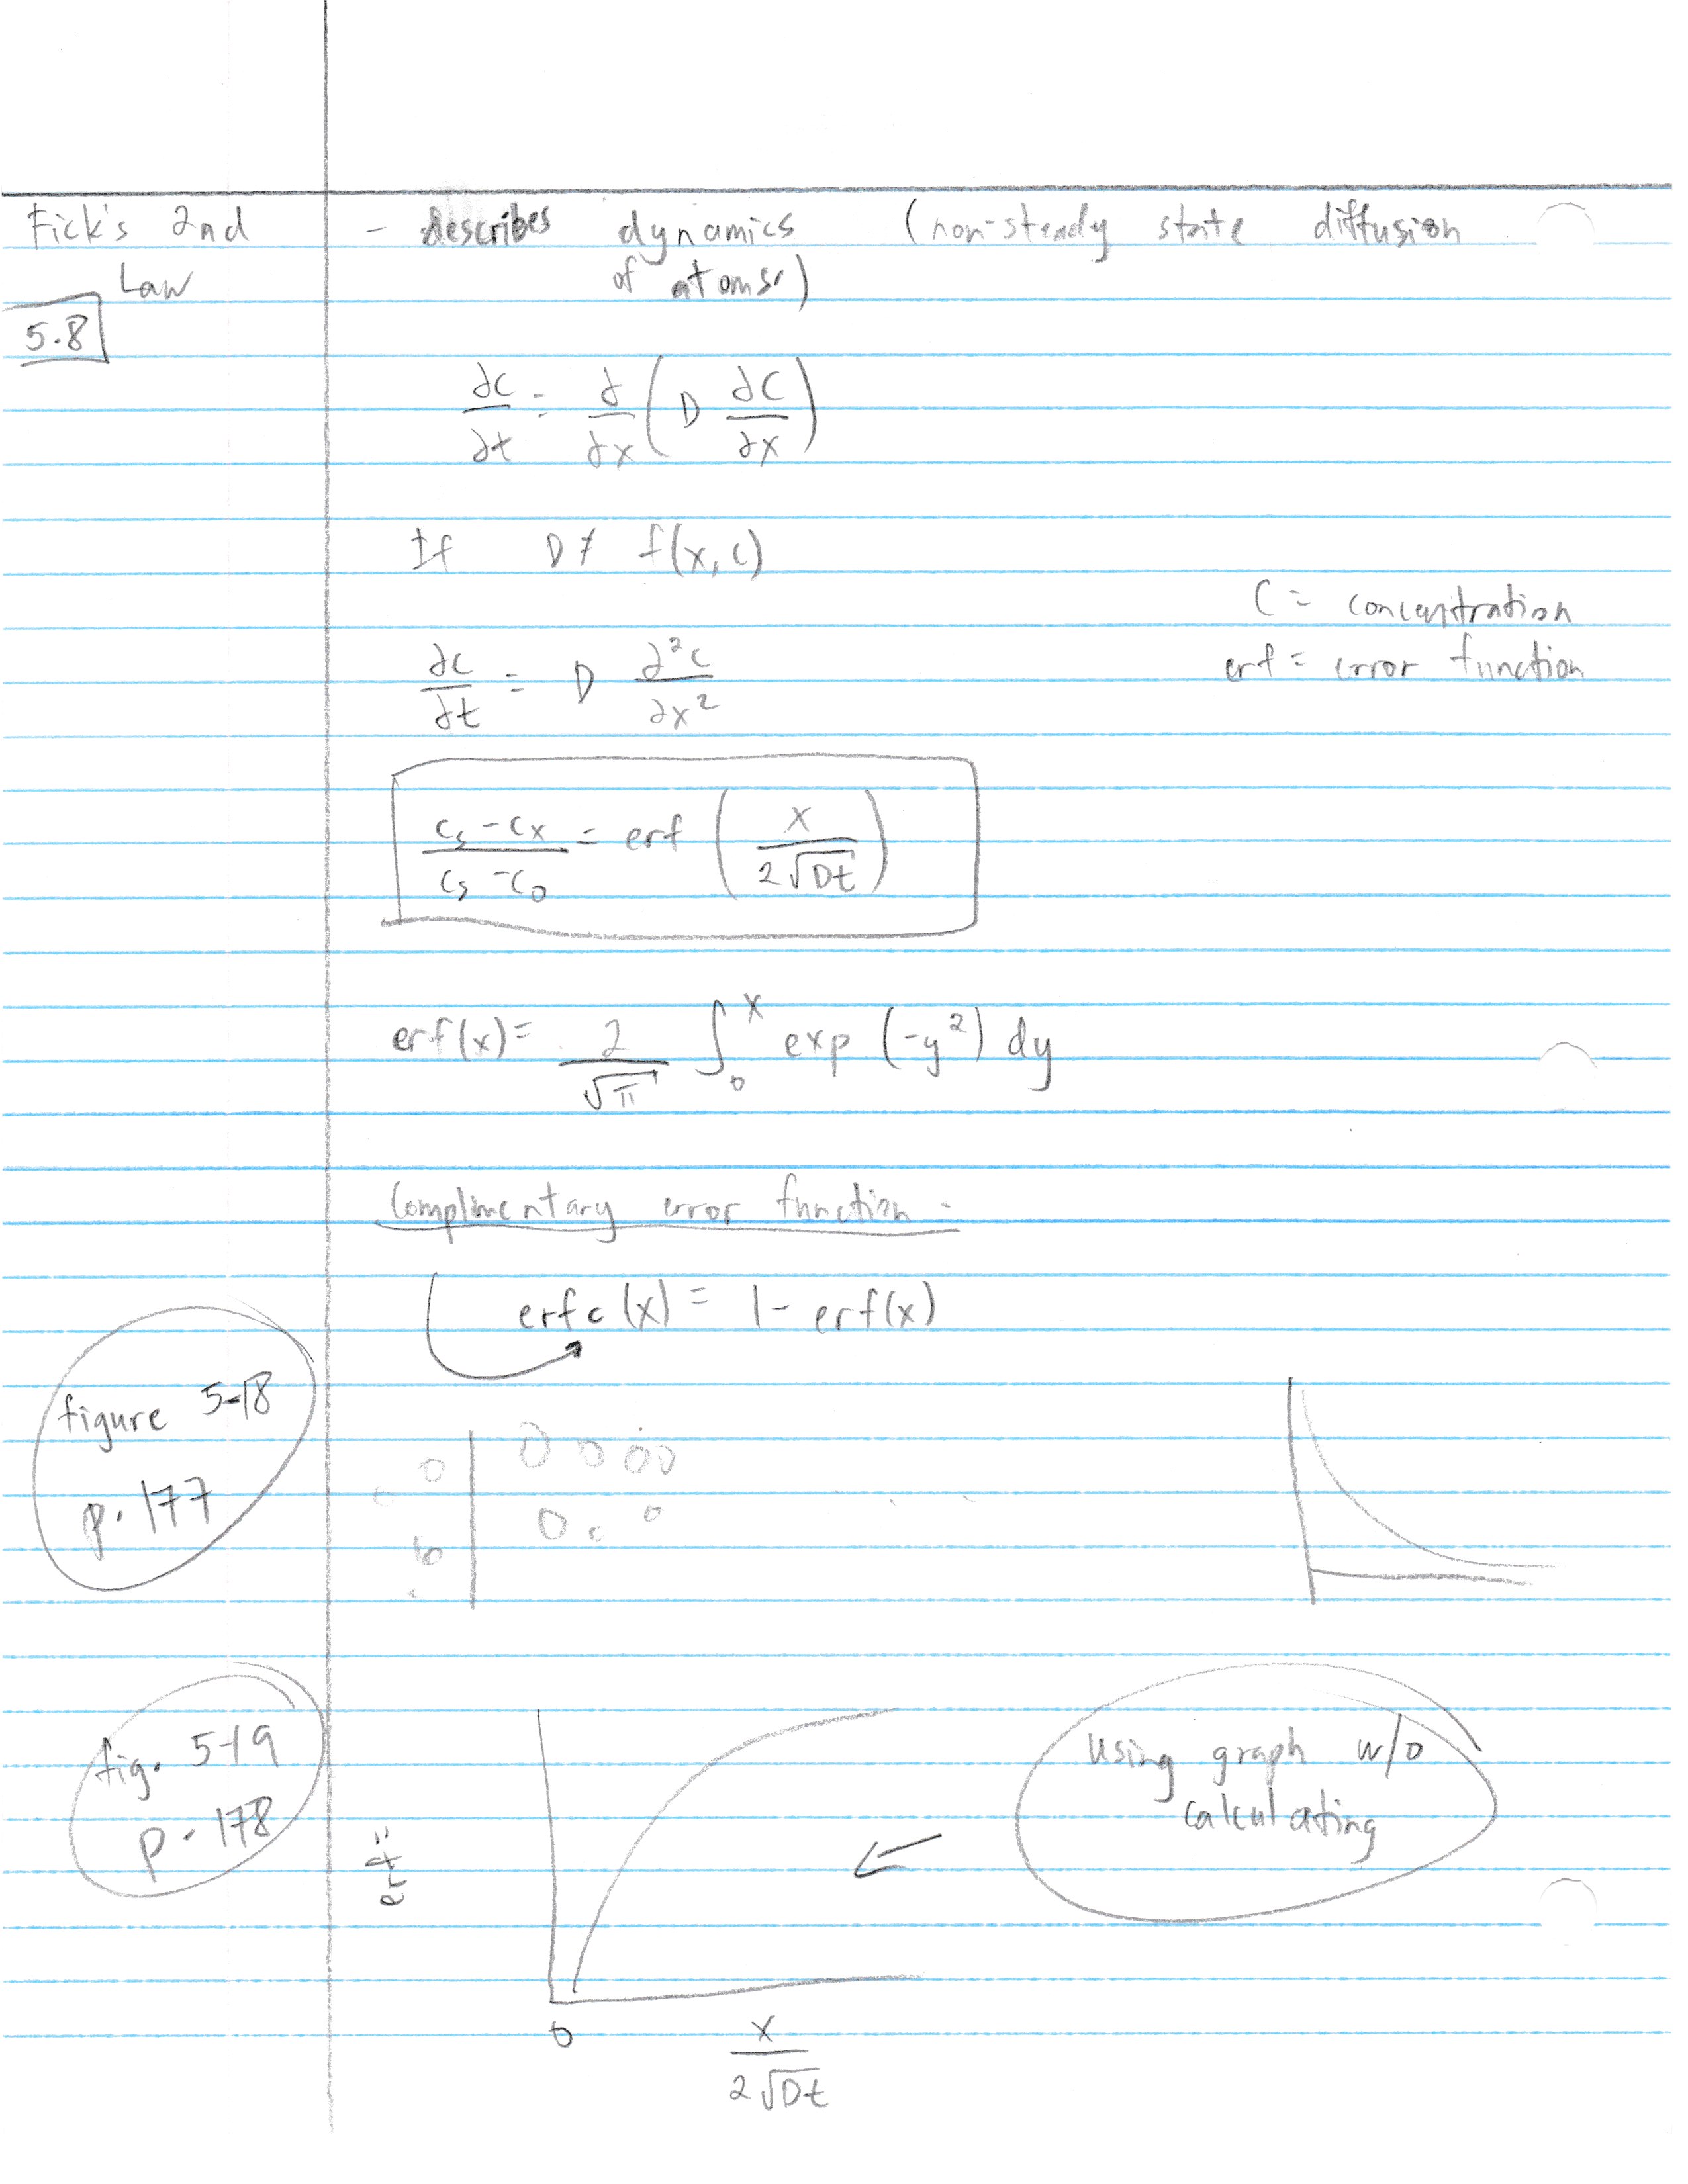 Fick's 2nd
Law
5.8
- describes dynamics (non-steady state diffusion
of atoms)
∂C/∂t = ∂/∂x (D ∂C/∂x)
If D ≠ f(x, c)
C = concentration
erf = error function
∂c/∂t = D ∂²c/∂x²
(c_s - c_x)/(c_s - c_0) = erf (x/(2√Dt))
erf(x) = 2/√π ∫₀ˣ exp (-y²) dy
Complimentary error function -
erfc(x) = 1 - erf(x)
figure 5-18
p. 177
fig. 5-19
p. 178
Using graph w/o
calculating
erf =
0
x/(2√Dt)